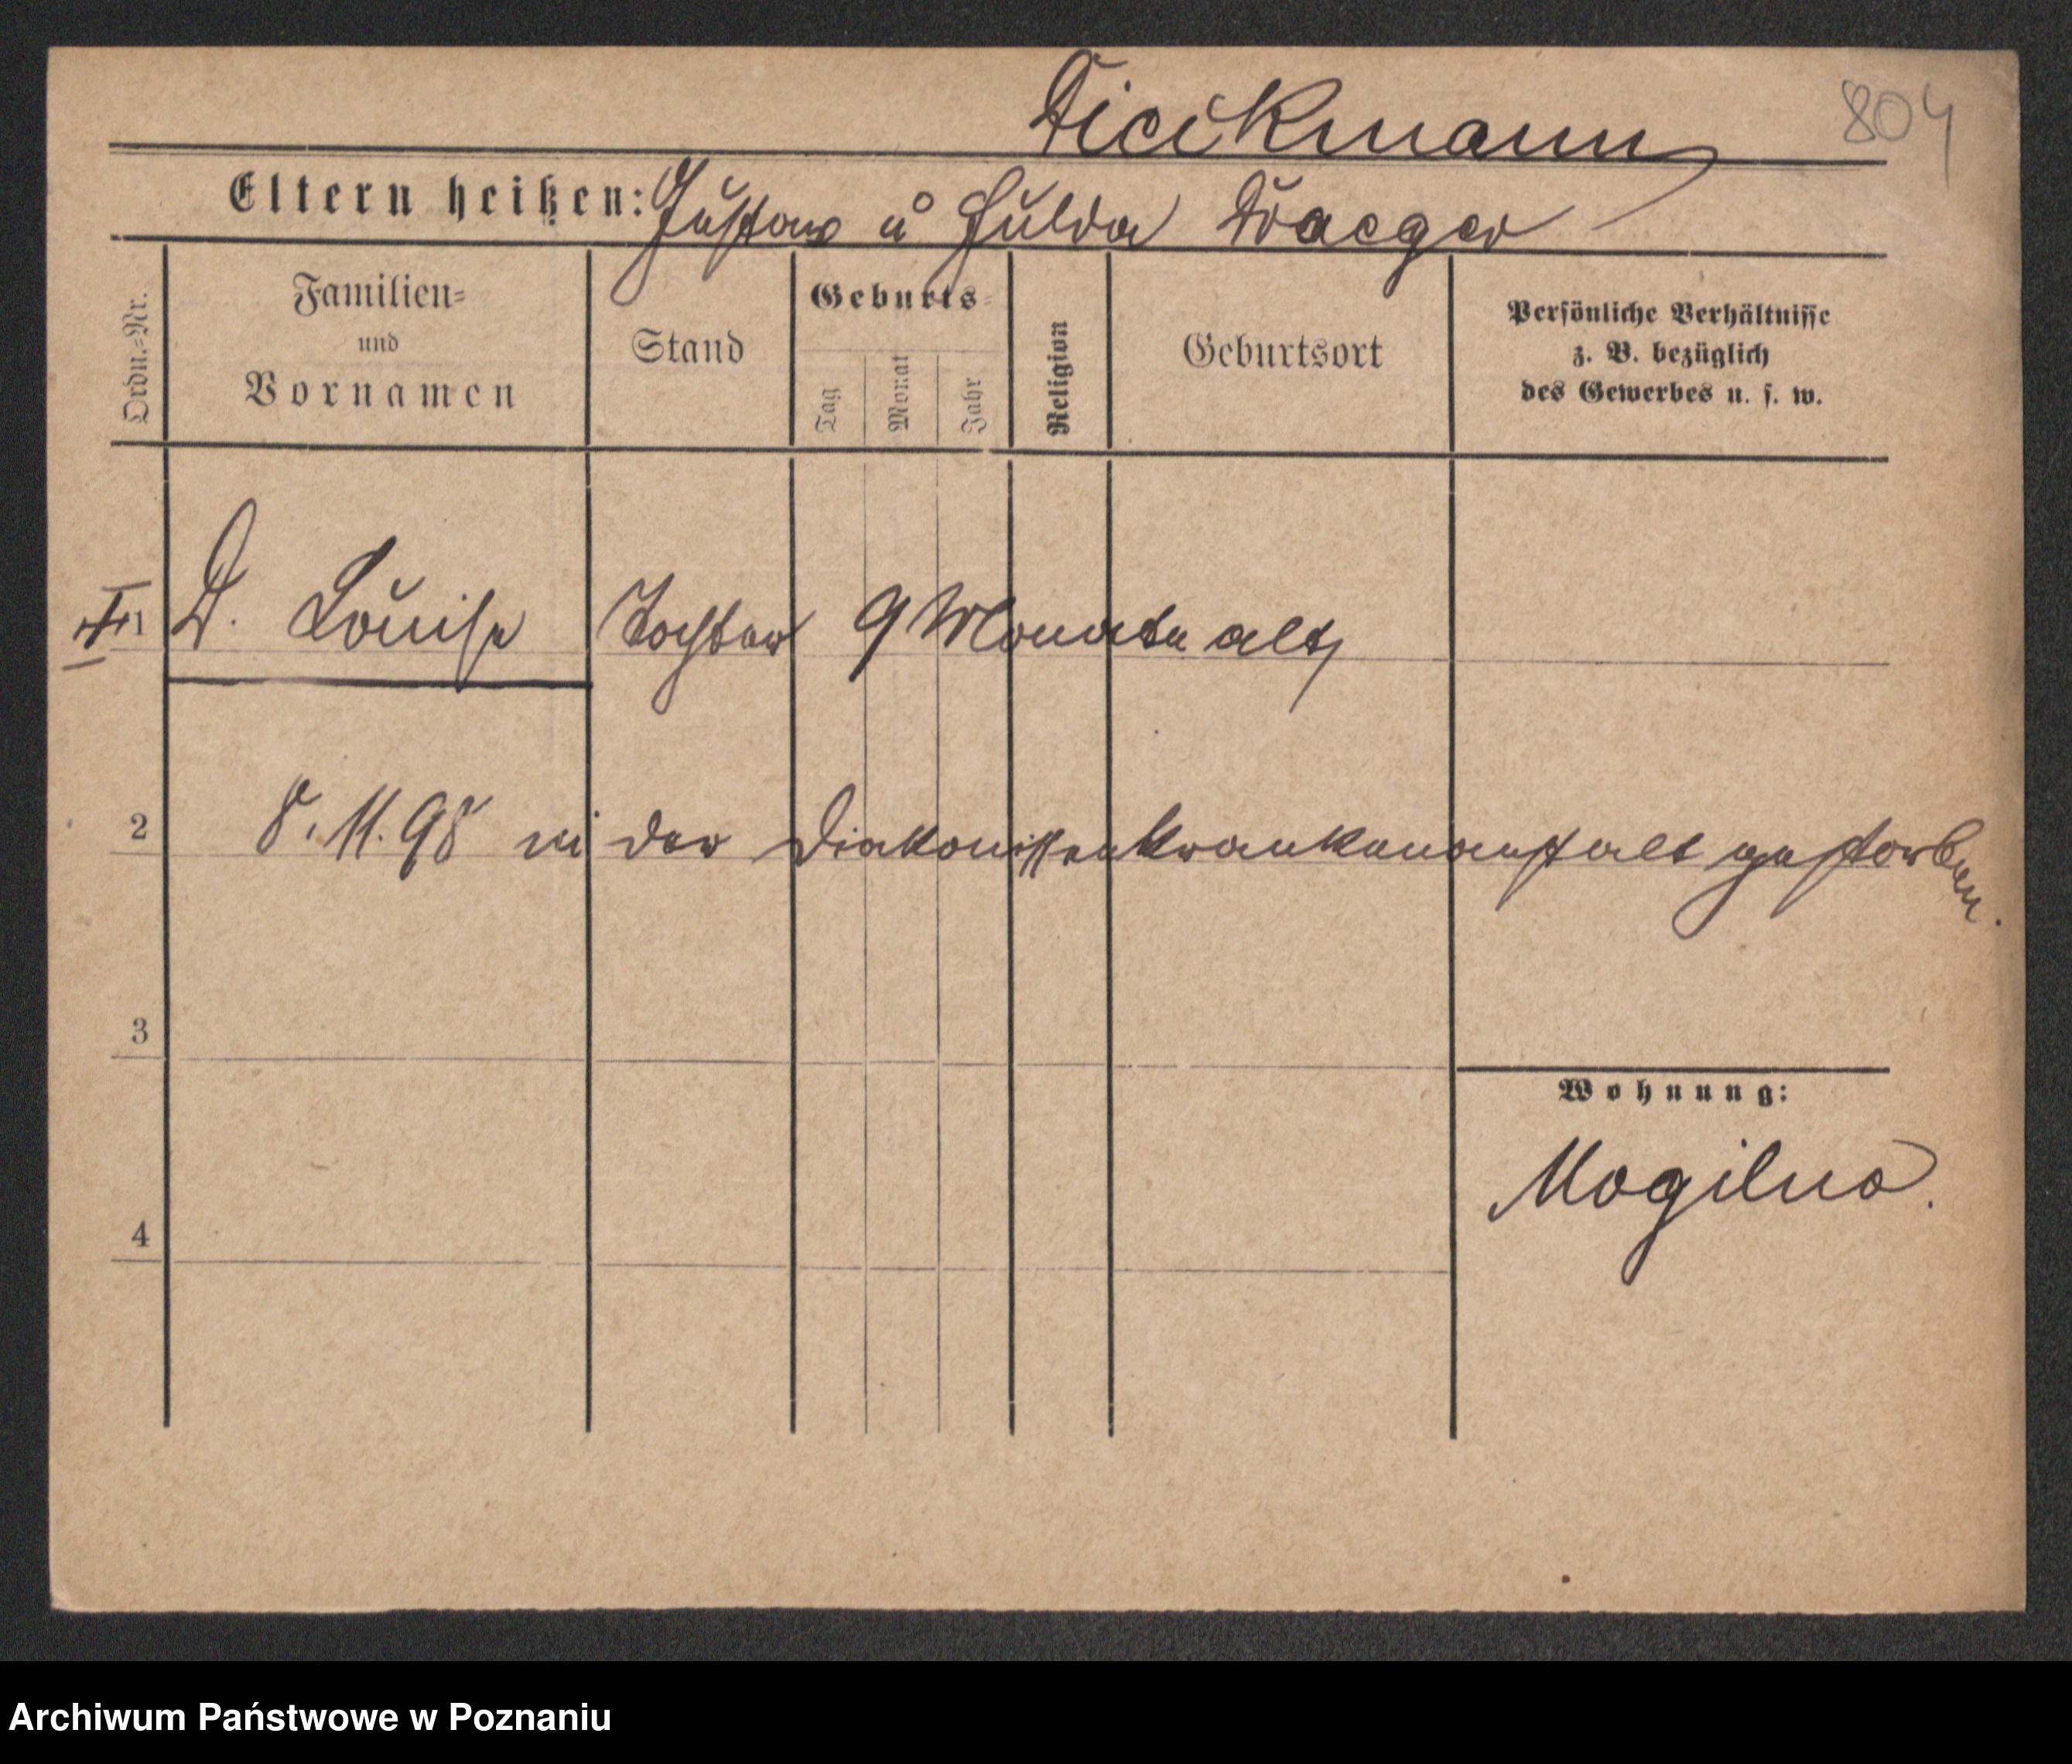 Dieckmann
804
Eltern heißen: Gustav u Hulda Draeger
Ordn.=Nr.
Familien=
und
Vornamen
Stand
Geburts=
Tag
Monat
Jahr
Religion
Geburtsort
Persönliche Verhältnisse
z. B. bezüglich
des Gewerbes u. s. w.
1 D. Louise Tochter 9 Monate alt
2 8. 11. 98 in der Diakonissenkrankenanstalt gestorben.
3
Wohnung:
Mogilno.
4
Archiwum Państwowe w Poznaniu